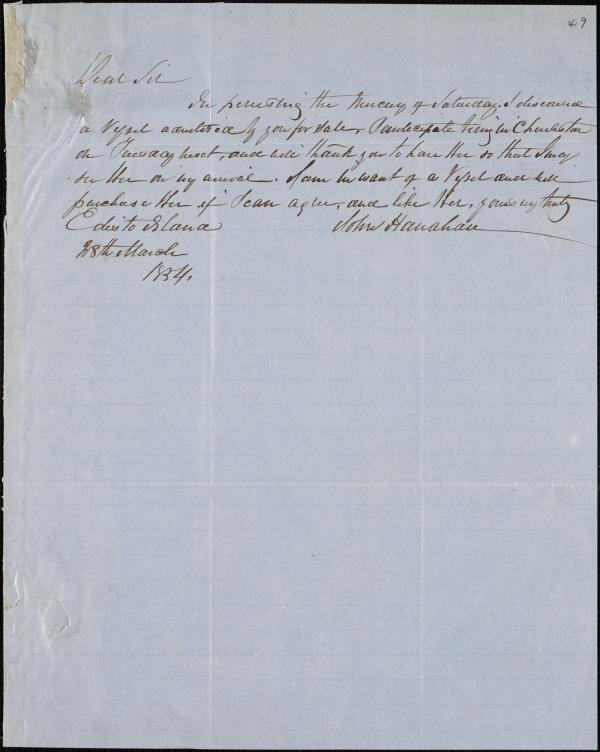 49
Dear Sir
In perusing the Mercury of Saturday I discovered
a Vessel advertised by you for Sale, I anticipate being in Charleston
on Tuesday next, and will thank you to have Her so that I may
see Her on my arrival. I am in want of a Vessel and will
purchase Her if I can agree, and like Her, yours very truly
Edisto Island John Hanahan
28th March
1854.